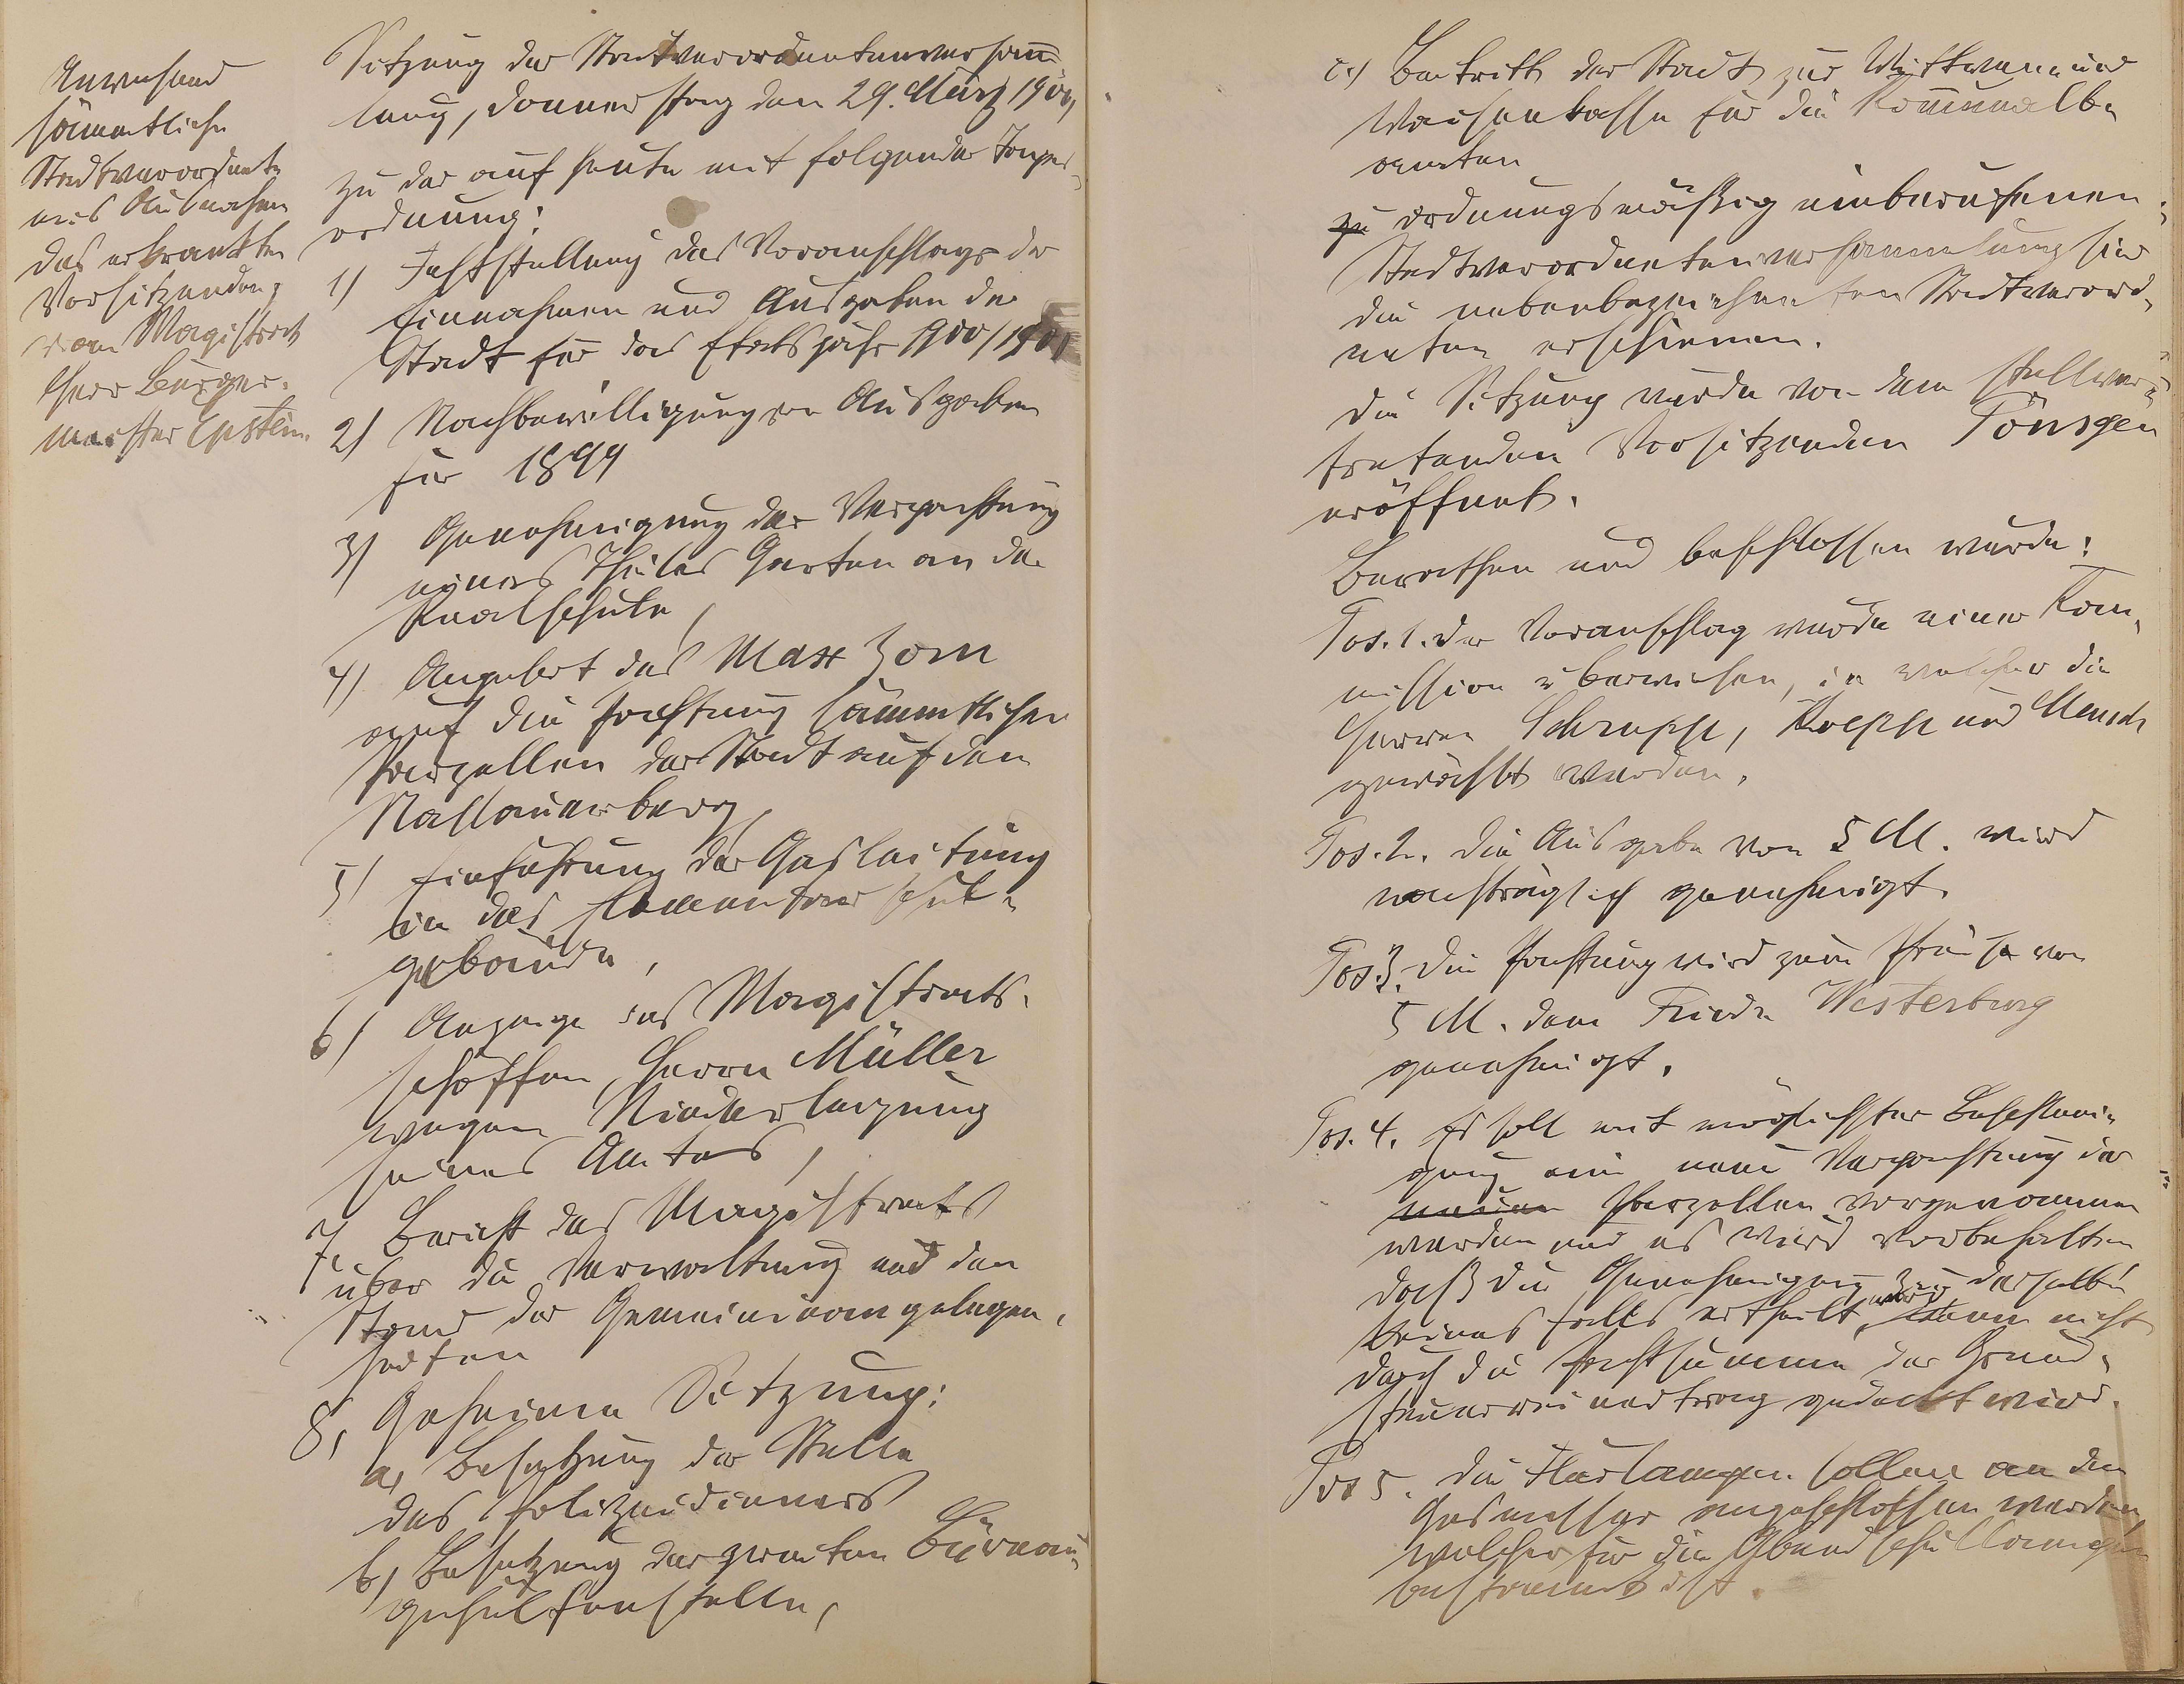 Anwesend
sämmtliche
Stadtverordnete
mit Ausnahme
des erkrankten
Vorsitzenden,
vom Magistrat
Herr Bürger-
meister Epstein.
Sitzung der Stadtverordnetenversamm-
lung, Donnerstag den 29. März 1900,
zu der auf heute mit folgender Tages-
ordnung:
1) Feststellung des Voranschlags der
Einnahmen und Ausgaben der
Stadt für das Etatsjahr 1900/1901
2) Nachbewilligung von Ausgaben
für 1899
3) Genehmigung der Verpachtung
eines Theiles Garten an der
Realschule,
4) Angebot des Max Zorn
auf die Pachtung sämmtlicher
Parzellen der Stadt auf dem
Nassauerberg,
5) Einführung der Gasleitung
in das Elementarschul-
gebäude,
6) Anzeige des Magistrats-
schöffen, Herrn Müller
wegen Niederlegung
seines Amtes,
7, Bericht des Magistrats
über die Verwaltung und den
Stand der Gemeindeangelegen-
heiten
8, Geheime Sitzung:
a, Besetzung der Stelle
des Polizeidieners
b, Besetzung der zweiten Büreau-
gehülfenstelle,
c,) Beitritt der Stadt zur Wittwen- und
Waisenkasse für die Kommunalbe-
amten
zu ordnungsmäßig einberufenen
Stadtverordnetenversammlung sind
die nebenbezeichneten Stadtverord-
neten erschienen.
Die Sitzung wurde von dem stellver-
tretenden Vorsitzenden Tönsgen
eröffnet.
Berathen und beschlossen wurde:
Pos. 1. Der Voranschlag wurde einer Kom-
mission überwiesen, in welcher die
Herren Schrupp, Koepp und Mensch
gewählt werden.
Pos. 2. Die Ausgabe von 5 M. wird
nachträglich genehmigt.
Pos 3. Die Pachtung wird zum Preise von
5 M. dem Friedr. Westerburg
genehmigt.
Pos. 4. Es soll mit möglichster Beschleuni-
gung eine neue Verpachtung der
neuen Parzellen vorgenommen
werden und es wird vorbehalten
daß die Genehmigung zu derselben
keines falls ertheilt wird, wenn nicht
durch die Pachtsumme der Grund-
steuerreinertrag gedeckt wird.
Pos 5. Die Flurlampen sollen an den
Gasmesser angeschlossen werden,
welcher für die Abendschullampen
bestimmt ist.